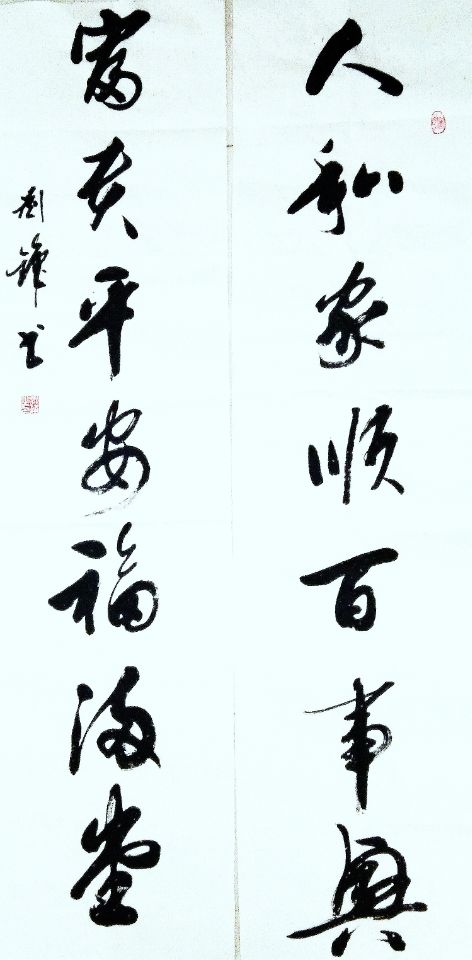 人和家顺百事興
富贵平安福满堂
刘锋书